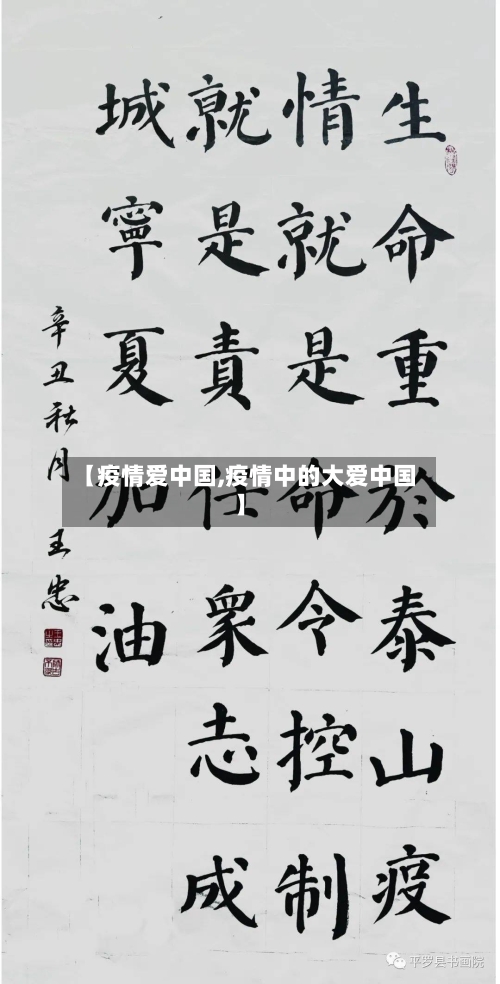 生命重於泰山疫
情就是命令控制
就是責任眾志成
城寧夏加油
辛丑秋月 王忠
【疫情爱中国,疫情中的大爱中国
】
平罗县书画院